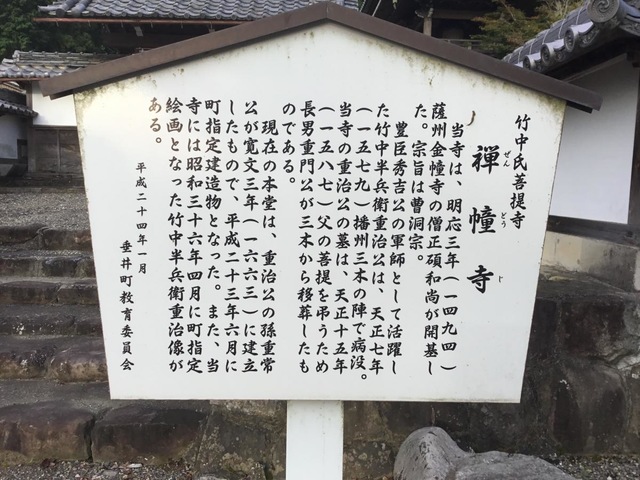 竹中氏菩提寺
禅幢寺
ぜん どう じ
当寺は、明応三年（一四九四）
薩州金幢寺の僧正碩和尚が開基し
た。宗旨は曹洞宗。
豊臣秀吉公の軍師として活躍し
た竹中半兵衛重治公は、天正七年
（一五七九）播州三木の陣で病没。
当寺の重治公の墓は、天正十五年
（一五八七）父の菩提を弔うため
長男重門公が三木から移葬したも
のである。
現在の本堂は、重治公の孫重常
公が寛文三年（一六六三）に建立
したもので、平成二十三年六月に
町指定建造物となった。また、当
寺には昭和三十六年四月に町指定
絵画となった竹中半兵衛重治像が
ある。
平成二十四年一月
垂井町教育委員会